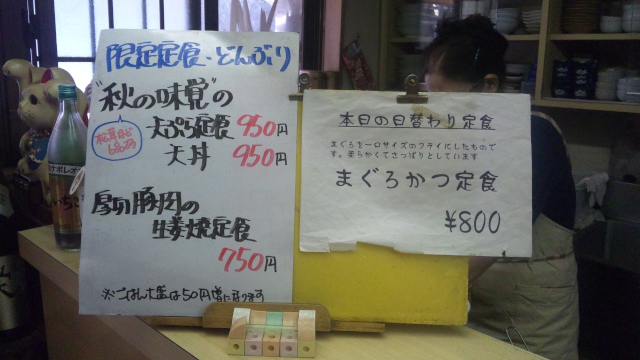 限定定食・どんぶり
"秋の味覚"の
天ぷら定食 950円
天丼 950円
松茸など
6品
厚切豚肉の
生姜焼定食
750円
※ごはん大盛は50円増になります
本日の日替わり定食
まぐろを一口サイズのフライにしたもので
す。柔らかくてさっぱりとしています
まぐろかつ定食
¥800
ナポレオ